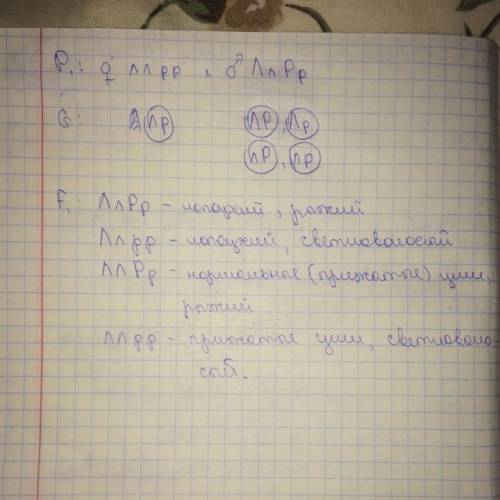 P₁: ♀ ллpp x ♂ ЛлPp
G: лp ЛP, Лp
лP, лp
F₁: ЛлPp - лопоухий, рыжий
Ллpp - лопоухий, светловолосый
ллPp - нормальные (прижатые) уши,
рыжий
ллpp - прижатые уши, светловоло-
сый.